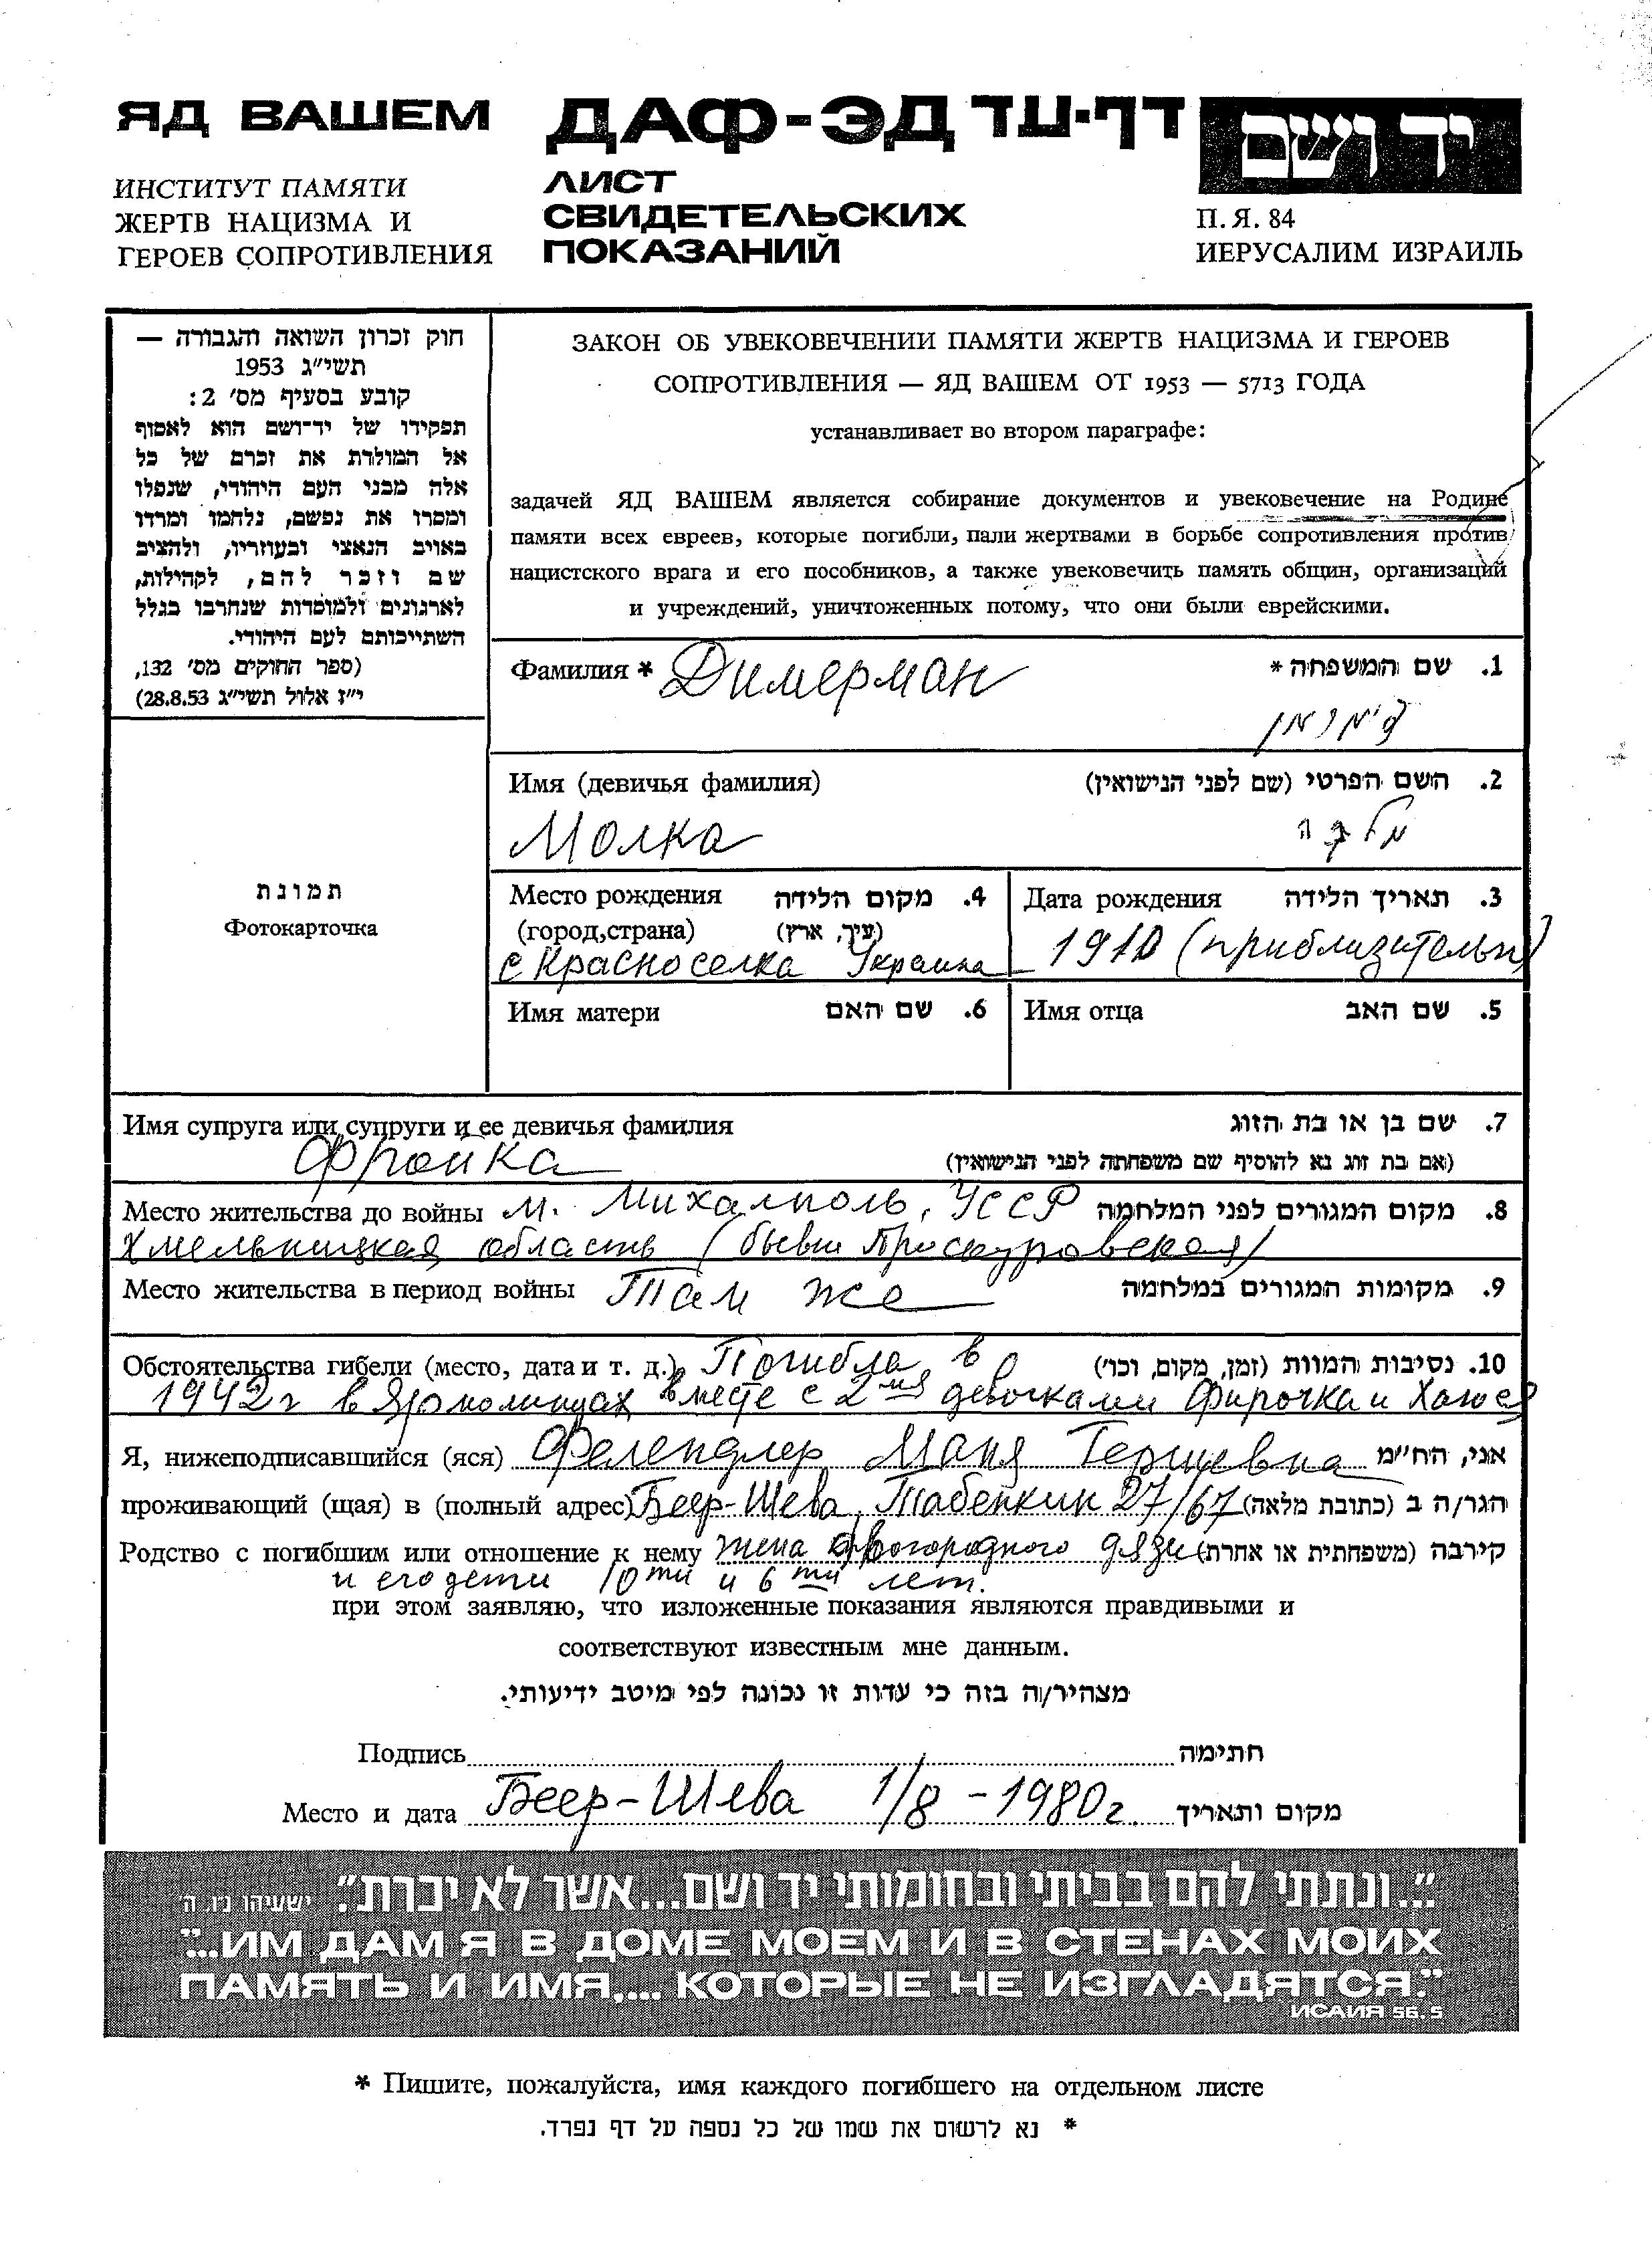 ЯД ВАШЕМ
ИНСТИТУТ ПАМЯТИ
ЖЕРТВ НАЦИЗМА И
ГЕРОЕВ СОПРОТИВЛЕНИЯ
ДАФ-ЭД דף-עד
ЛИСТ
СВИДЕТЕЛЬСКИХ
ПОКАЗАНИЙ
יד ושם
П. Я. 84
ИЕРУСАЛИМ ИЗРАИЛЬ
חוק זכרון השואה והגבורה —
תשי״ג 1953
קובע בסעיף מס׳ 2:
תפקידו של יד־ושם הוא לאסוף
אל המולדת את זכרם של כל
אלה מבני העם היהודי, שנפלו
ומסרו את נפשם, נלחמו ומרדו
באויב הנאצי ובעוזריו, ולהציב
שם וזכר להם, לקהילות,
לארגונים ולמוסדות שנחרבו בגלל
השתייכותם לעם היהודי.
(ספר החוקים מס׳ 132,
י״ז אלול תשי״ג 28.8.53)
ЗАКОН ОБ УВЕКОВЕЧЕНИИ ПАМЯТИ ЖЕРТВ НАЦИЗМА И ГЕРОЕВ
СОПРОТИВЛЕНИЯ — ЯД ВАШЕМ ОТ 1953 — 5713 ГОДА
устанавливает во втором параграфе:
задачей ЯД ВАШЕМ является собирание документов и увековечение на Родине
памяти всех евреев, которые погибли, пали жертвами в борьбе сопротивления против
нацистского врага и его пособников, а также увековечить память общин, организаций
и учреждений, уничтоженных потому, что они были еврейскими.
Фамилия * Димерман 1. שם המשפחה *
דימרמן
Имя (девичья фамилия) 2. השם הפרטי (שם לפני הנישואין)
Молка מלקה
תמונת
Фотокарточка
Место рождения 4. מקום הלידה
(город,страна) (עיר, ארץ)
с Красноселка Украина
Дата рождения 3. תאריך הלידה
1910 (приблизительн)
Имя матери 6. שם האם
Имя отца 5. שם האב
Имя супруга или супруги и ее девичья фамилия 7. שם בן או בת הזוג
Фройка (אם בת זוג נא להוסיף שם משפחתה לפני הנישואין)
Место жительства до войны м. Михалполь, УССР 8. מקום המגורים לפני המלחמה
Хмельницкая область (бывш Проскуровская)
Место жительства в период войны Там же 9. מקומות המגורים במלחמה
Обстоятельства гибели (место, дата и т. д.) Погибла в 10. נסיבות המוות (זמן, מקום, וכו׳)
1942г в Ярмолинцах вместе с 2мя девочками Фирочка и
Я, нижеподписавшийся (яся) Фелендлер Маня Гершевна אני, הח״מ
проживающий (щая) в (полный адрес) Беер-Шева, Табенкин 27/67 הגר/ה ב (כתובת מלאה)
Родство с погибшим или отношение к нему жена двогородного дяди קירבה (משפחתית או אחרת)
и его дети 10ти и 6ти лет.
при этом заявляю, что изложенные показания являются правдивыми и
соответствуют известным мне данным.
מצהיר/ה בזה כי עדות זו נכונה לפי מיטב ידיעותי.
Подпись חתימה
Место и дата Беер-Шева 1/8 - 1980г. מקום ותאריך
״...ונתתי להם בביתי ובחומותי יד ושם...אשר לא יכרת״. ישעיהו נ״ו, ה׳
"...ИМ ДАМ Я В ДОМЕ МОЕМ И В СТЕНАХ МОИХ
ПАМЯТЬ И ИМЯ,... КОТОРЫЕ НЕ ИЗГЛАДЯТСЯ."
ИСАИЯ 56, 5
* Пишите, пожалуйста, имя каждого погибшего на отдельном листе
* נא לרשום את שמו של כל נספה על דף נפרד.